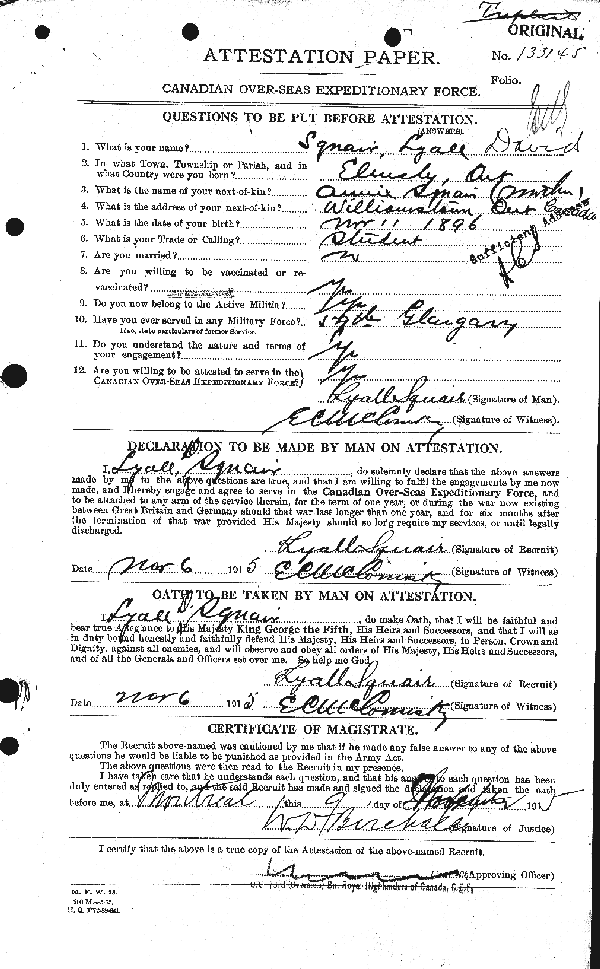 Triplicate
ORIGINAL
No. 133145
Folio.
ATTESTATION PAPER.
CANADIAN OVER-SEAS EXPEDITIONARY FORCE.
QUESTIONS TO BE PUT BEFORE ATTESTATION.
(ANSWERS)
1. What is your name? Squair, Lyall David
2. In what Town, Township or Parish, and in
what Country were you born? Ont
3. What is the name of your next-of-kin? Annie Squair (Mother)
4. What is the address of your next-of-kin? Williamstown, Ont Canada
5. What is the date of your birth? Nov 11 1896
6. What is your Trade or Calling? Student
7. Are you married? N
8. Are you willing to be vaccinated or re-
vaccinated? Y
9. Do you now belong to the Active Militia? Y
10. Have you ever served in any Military Force? 59th Glengarry
If so, state particulars of former Service.
11. Do you understand the nature and terms of
your engagement? Y
12. Are you willing to be attested to serve in the
CANADIAN OVER-SEAS EXPEDITIONARY FORCE? Y
Lyall Squair (Signature of Man).
(Signature of Witness).
DECLARATION TO BE MADE BY MAN ON ATTESTATION.
I, Lyall D Squair, do solemnly declare that the above answers
made by me to the above questions are true, and that I am willing to fulfil the engagements by me now
made, and I hereby engage and agree to serve in the Canadian Over-Seas Expeditionary Force, and
to be attached to any arm of the service therein, for the term of one year, or during the war now existing
between Great Britain and Germany should that war last longer than one year, and for six months after
the termination of that war provided His Majesty should so long require my services, or until legally
discharged.
Lyall Squair (Signature of Recruit)
Date Nov 6 1915 (Signature of Witness)
OATH TO BE TAKEN BY MAN ON ATTESTATION.
I, Lyall D Squair, do make Oath, that I will be faithful and
bear true Allegiance to His Majesty King George the Fifth, His Heirs and Successors, and that I will as
in duty bound honestly and faithfully defend His Majesty, His Heirs and Successors, in Person, Crown and
Dignity, against all enemies, and will observe and obey all orders of His Majesty, His Heirs and Successors,
and of all the Generals and Officers set over me. So help me God.
Lyall Squair (Signature of Recruit)
Date Nov 6 1915 (Signature of Witness)
CERTIFICATE OF MAGISTRATE.
The Recruit above-named was cautioned by me that if he made any false answer to any of the above
questions he would be liable to be punished as provided in the Army Act.
The above questions were then read to the Recruit in my presence.
I have taken care that he understands each question, and that his answer to each question has been
duly entered as replied to, and the said Recruit has made and signed the declaration and taken the oath
before me, at Montreal this 9 day of 1915
(Signature of Justice)
I certify that the above is a true copy of the Attestation of the above-named Recruit.
(Approving Officer)
Royal Highlanders of Canada, C.E.F.
M. F. W. 23.